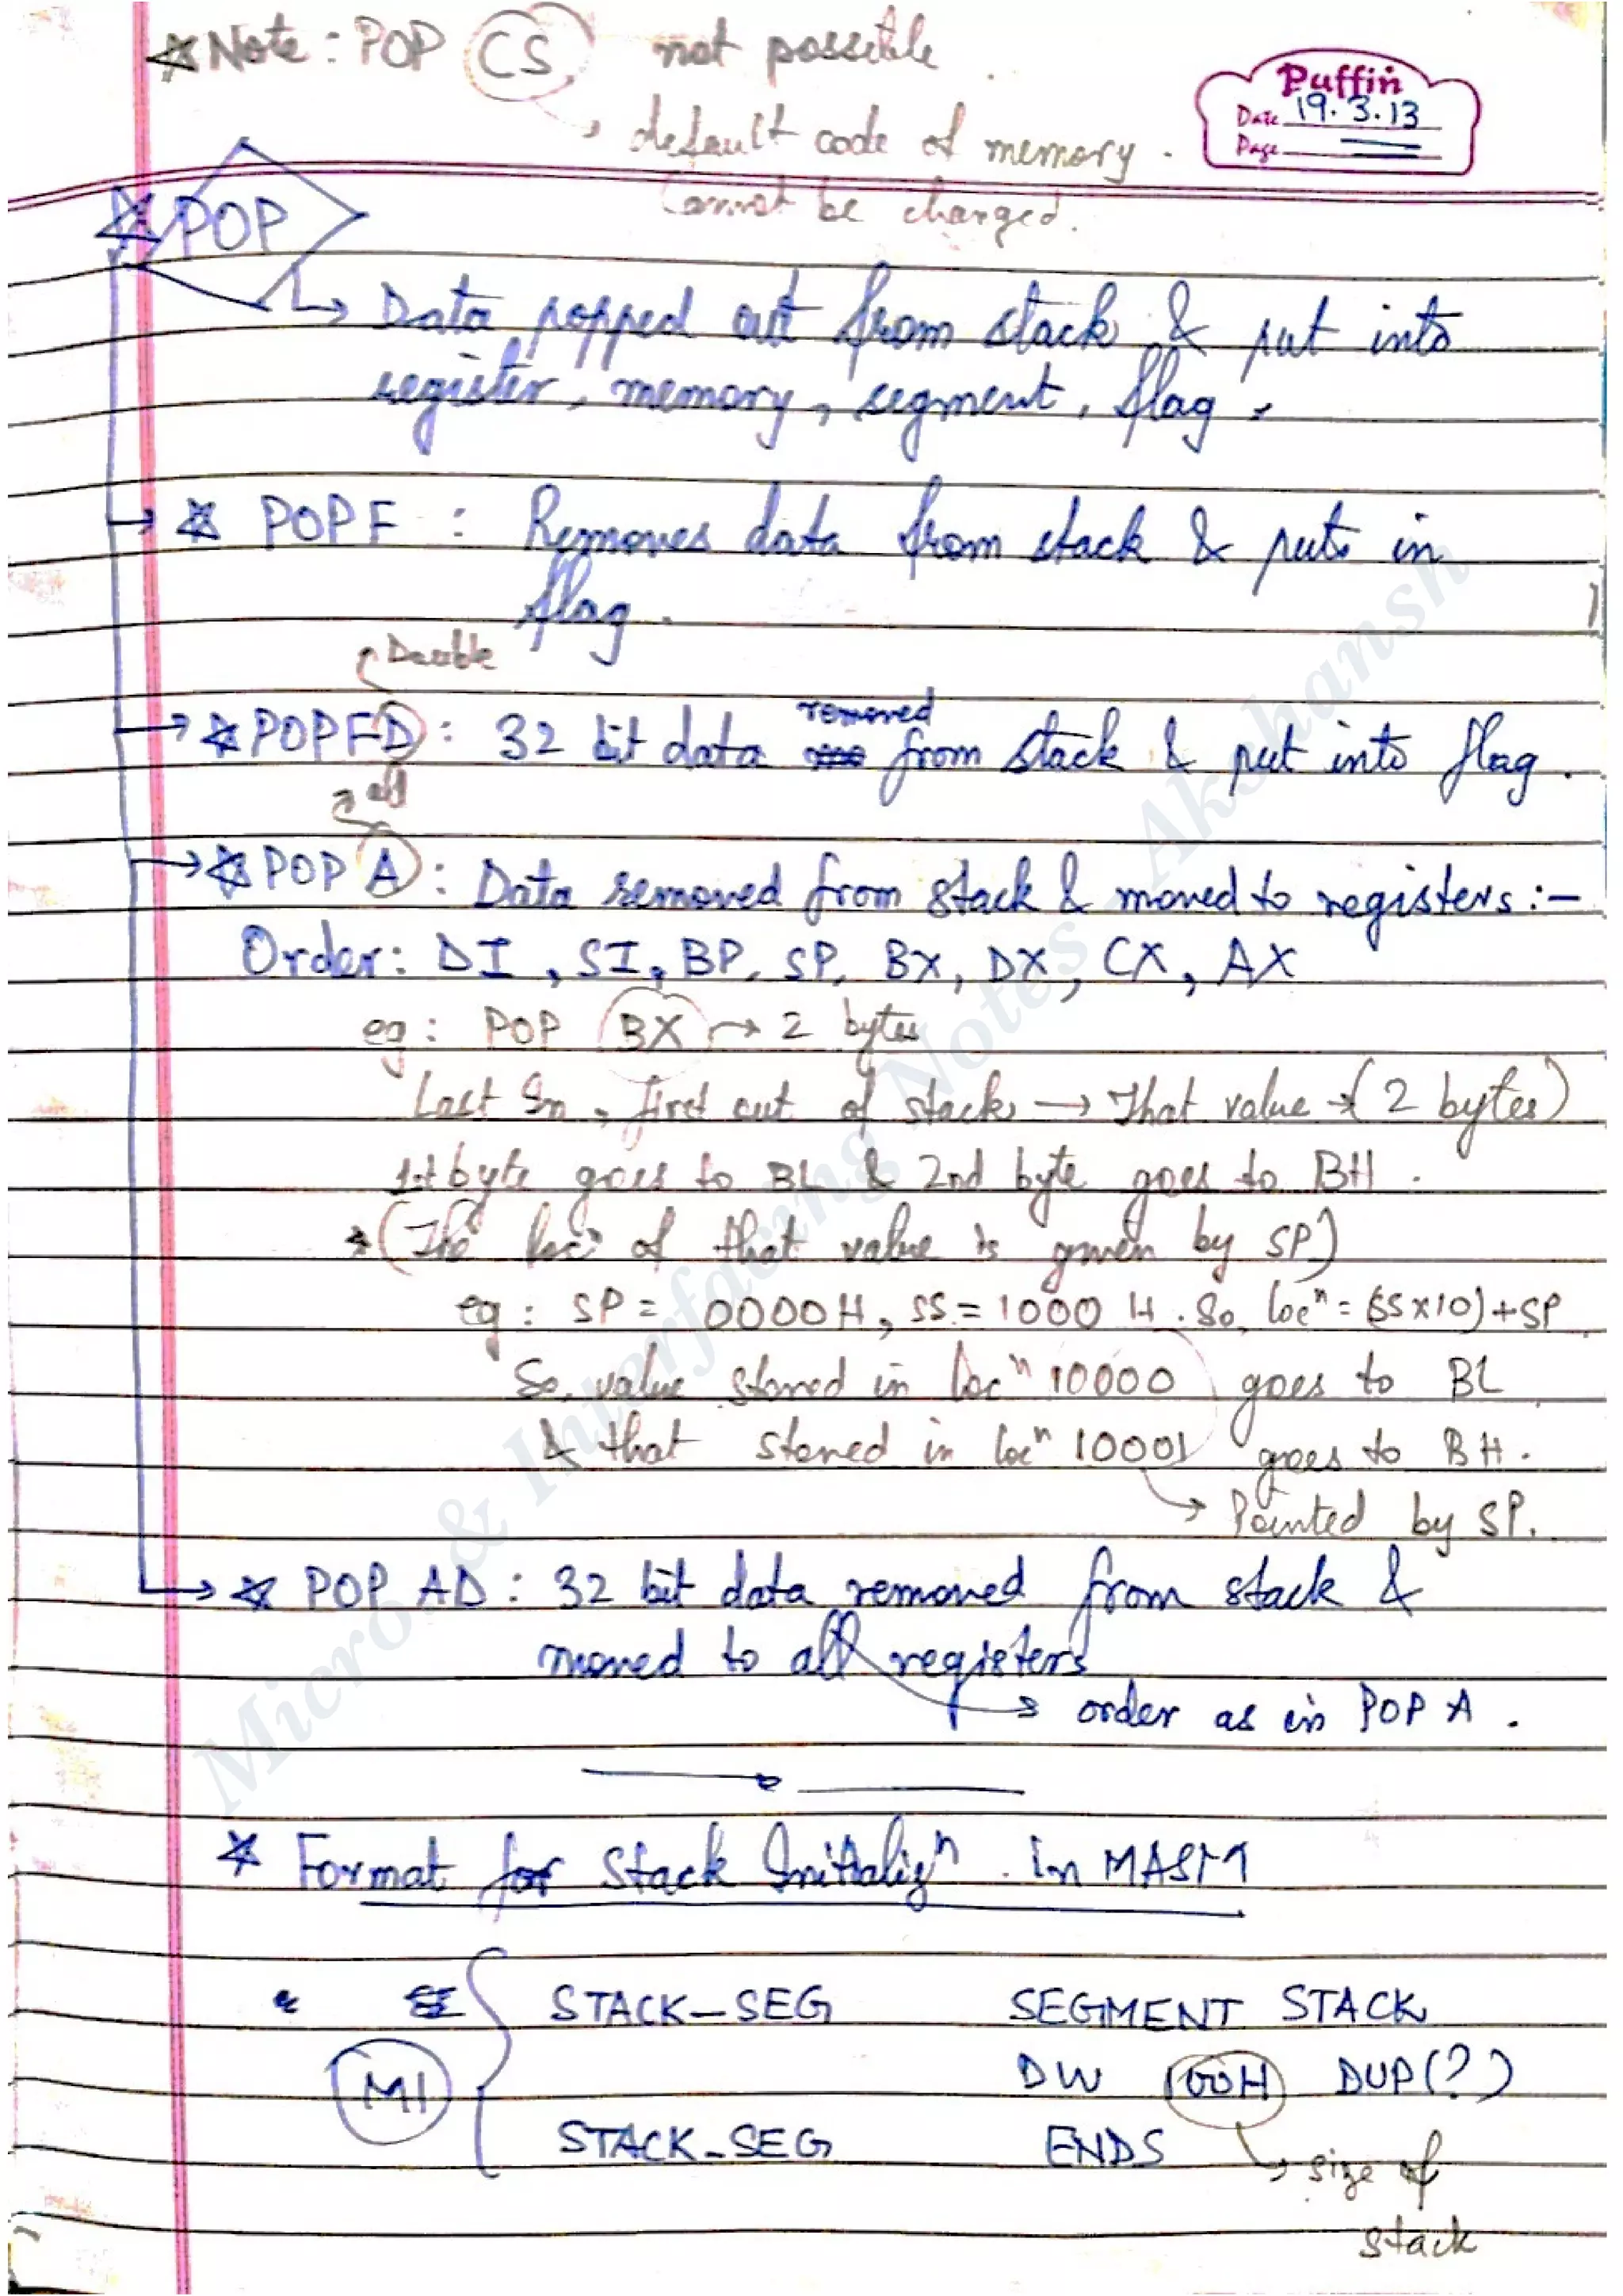 ☆ Note : POP CS, not possible.
→ default code of memory.
Cannot be changed.
Puffin
Date 19.3.13
Page
☆ POP
↳ Data popped out from stack & put into
register, memory, segment, flag.
→ ☆ POPF : Removes data from stack & puts in
flag.
Double
→ ☆ POPFD : 32 bit data removed from stack & put into flag.
all
→ ☆ POP A : Data removed from stack & moved to registers :-
Order : DI, SI, BP, SP, BX, DX, CX, AX
eg : POP BX → 2 bytes
Last In, first out of stack → That value → (2 bytes)
1st byte goes to BL & 2nd byte goes to BH.
* (The locn of that value is given by SP)
eg : SP = 0000H, SS = 1000 H. So, locn = (SS×10)+SP
So, value stored in locn 10000 goes to BL
& that stored in locn 10001 goes to BH.
→ Pointed by SP.
→ ☆ POP AD : 32 bit data removed from stack &
moved to all registers
→ order as in POP A.
☆ Format for Stack Initializn. in MASM
STACK_SEG SEGMENT STACK
M1 DW 100H DUP(?)
STACK_SEG ENDS
→ size of
stack
Micro & Interfacing Notes - Akshansh